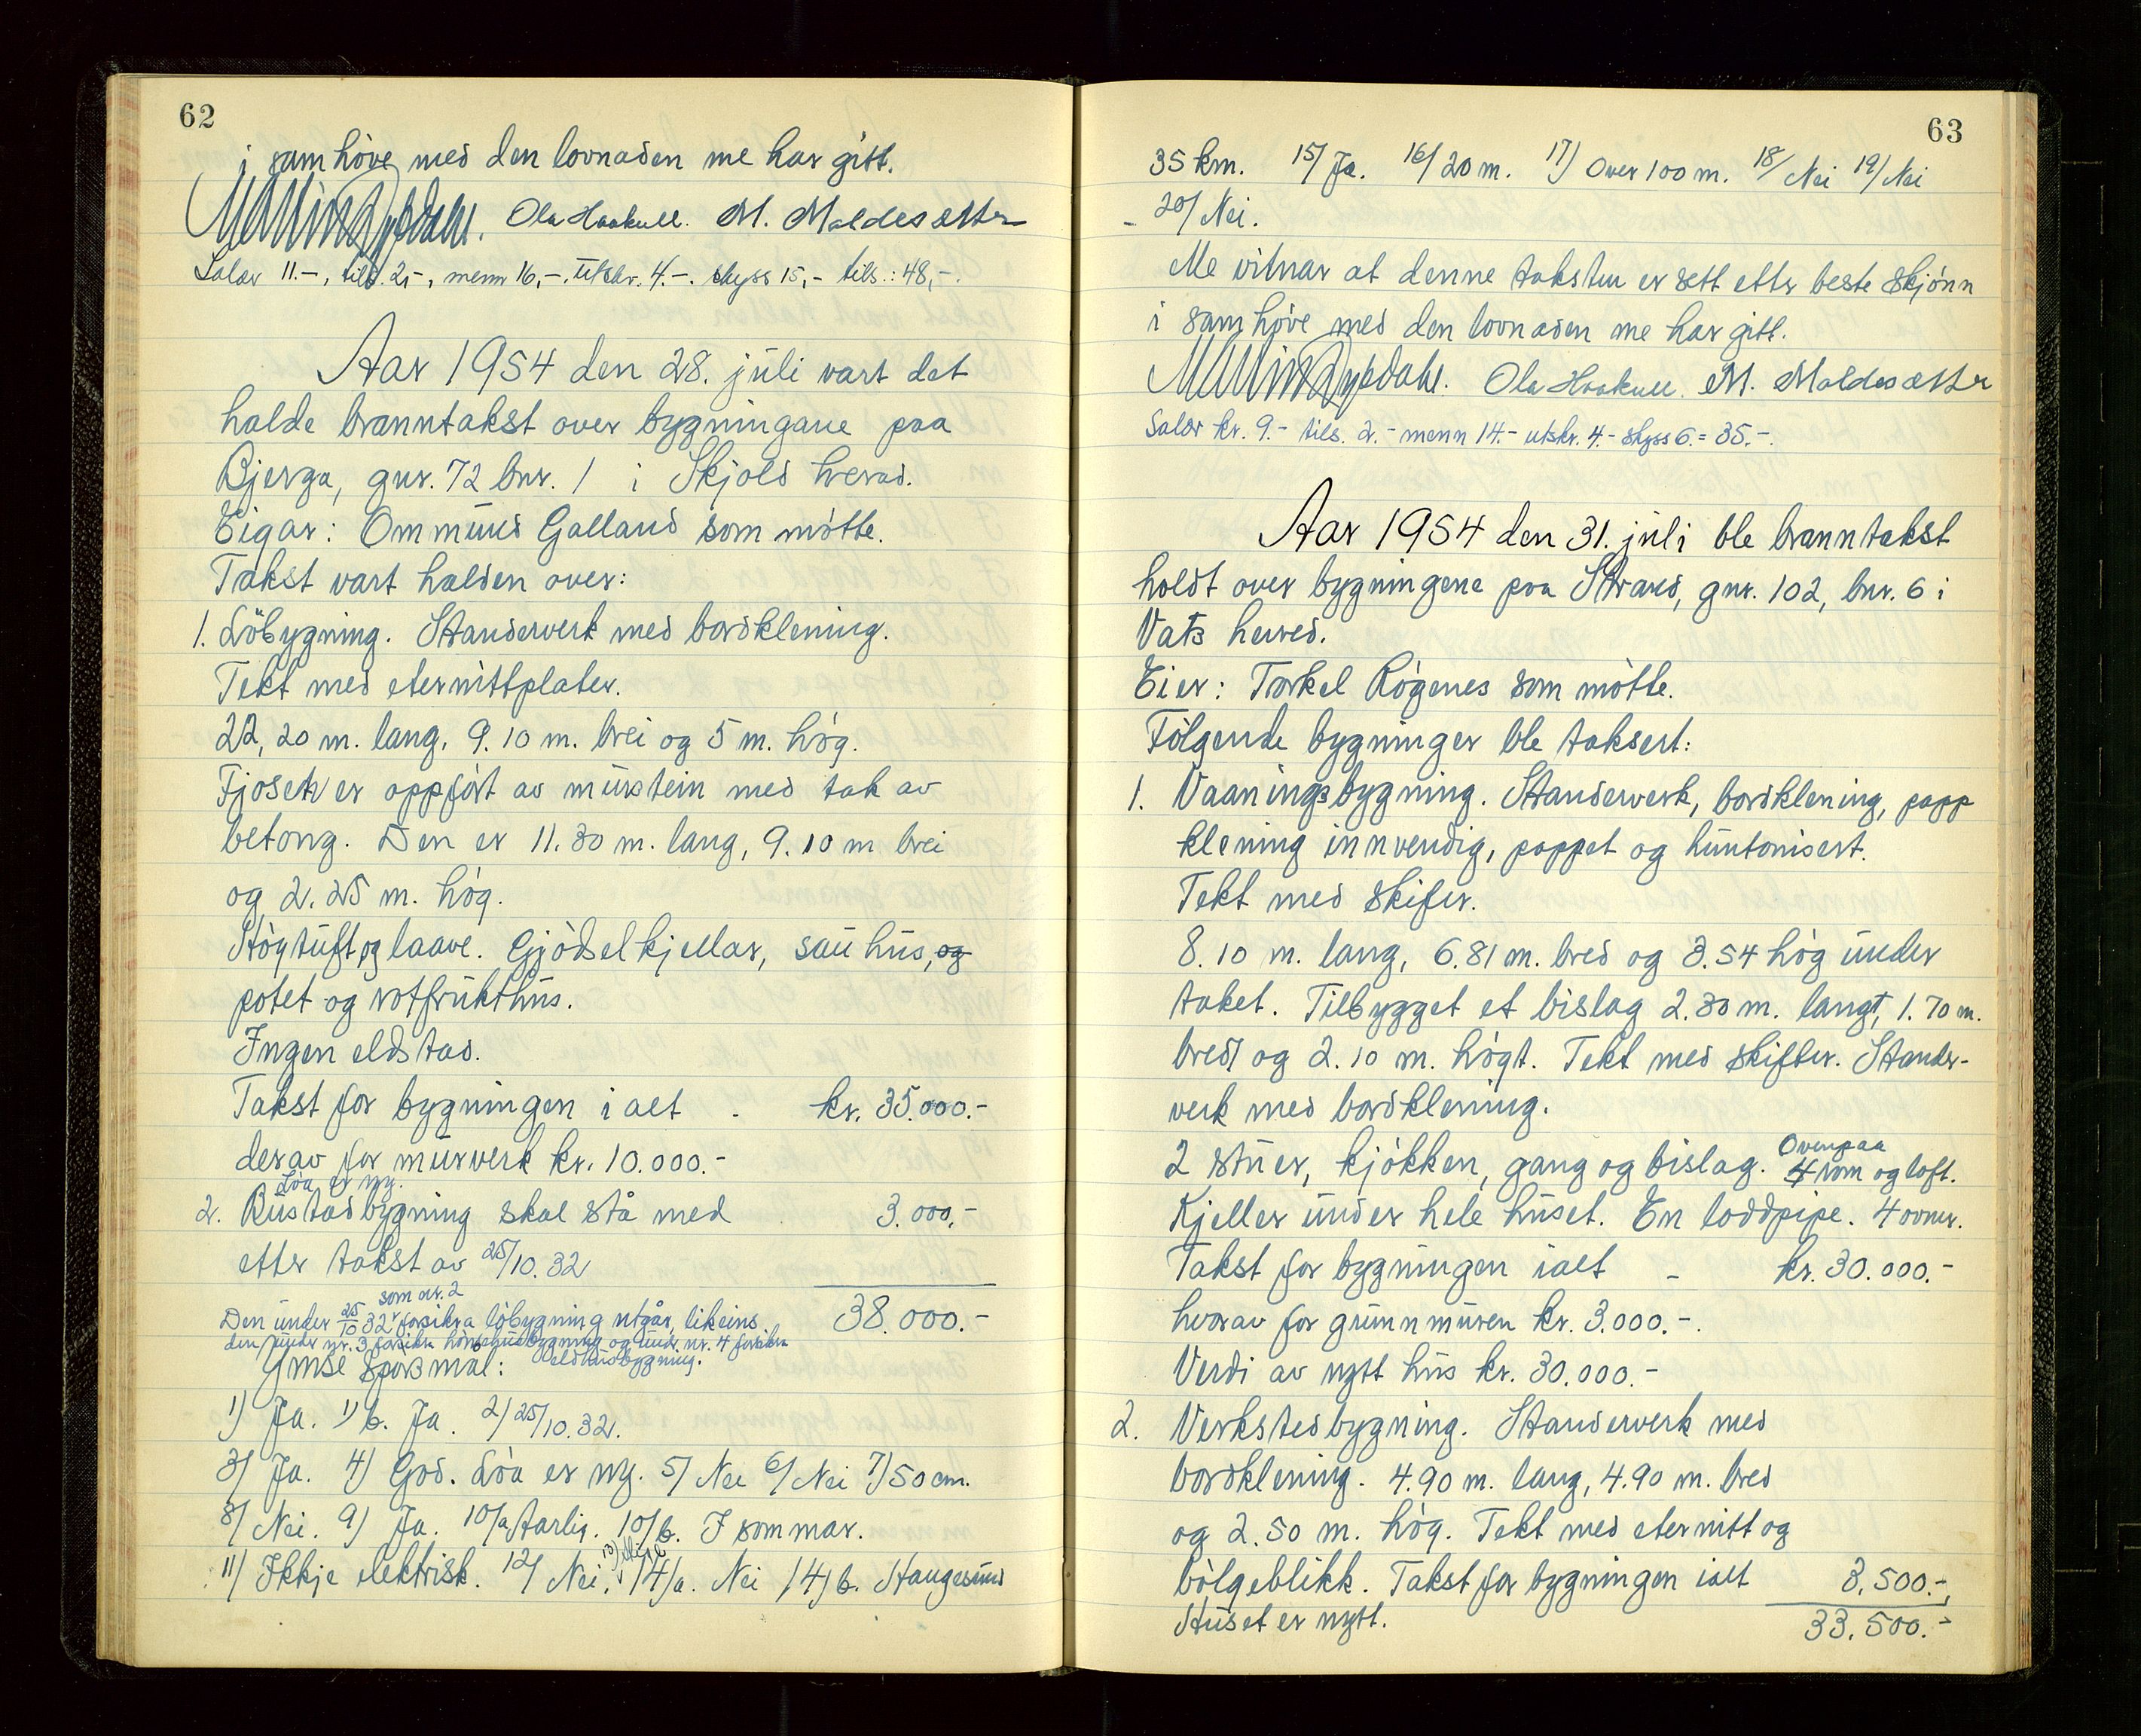 62
i samhöve med den lovnaden me har gitt.
Ola Haakull. M. Maldesætter
Salær 11.-, tils. 2,-, menn 16,-, utskr. 4.-. skyss 15,- tils.: 48,-.
Aar 1954 den 28. juli vart det
halde branntakst over bygningane paa
Bjerga, gnr. 72 bnr. 1 i Skjold herad.
Eigar: Ommund Galland som mötte.
Takst vart halden over:
1. Löbygning. Standerverk med bordklening.
Tekt med eternittplater.
22,20 m. lang, 9.10 m. brei og 5 m. hög.
Fjosen er oppfört av murstein med tak av
betong. Den er 11.30 m. lang, 9.10 m brei
og 2.25 m. hög.
Höytuft og laave. Gjödselkjellar, sauhus, og
potet og rotfrukthus.
Ingen eldstad.
Takst for bygningen i alt - kr. 35.000.-
derav for murverk kr. 10.000.-
Löa er ny.
2. Bustadbygning skal stå med 3.000,-
etter takst av 25/10.32
38.000.-
som nr. 2
Den under 25/10 32 forsikra löbygning utgår, likeins
den under nr. 3 forsikra hönsehusbygning og under nr. 4 forsikra
eldhusbygning.
Ymse sporsmal:
1) Ja. 1) b. Ja. 2) 25/10.32.
3) Ja. 4) God. Löa er ny. 5) Nei 6) Nei 7) 50 cm.
8) Nei. 9) Ja. 10/a Aarlig. 10/b. I sommar.
11) Ikkje elektrisk. 12) Nei. 14/a. Nei 14) b. Haugesund
63
35 km. 15) Ja. 16) 20 m. 17) Over 100 m. 18) Nei 19) Nei
- 20) Nei.
Me vitnar at denne taksten er sett etter beste skjönn
i samhöve med den lovnaden me har gitt.
Ola Haakull. M. Maldesætter
Salær kr. 9.- tils. 2.- menn 14.- utskr. 4.- skyss 6.= 35.-.
Aar 1954 den 31. juli ble branntakst
holdt over bygningene paa Strand, gnr. 102, bnr. 6 i
Vats herred.
Eier: Torkel Rögenes som mötte.
Fölgende bygninger ble taksert:
1. Vaaningsbygning. Standerverk, bordklening, papp
klening innvendig, pappet og huntonisert.
Tekt med skifer.
8.10 m. lang, 6.81 m. bred og 3.54 hög under
taket. Tilbygget et bislag 2.30 m. langt, 1.70 m.
bredt og 2.10 m. högt. Tekt med skifter. Stander-
verk med bordklening.
Ovenpaa
2 stuer, kjökken, gang og bislag. 4 rom og loft.
Kjeller under hele huset. En loddpipe. 4 ovner.
Takst for bygningen ialt - kr. 30.000.-
hvorav for grunnmuren kr. 3.000.-.
Verdi av nytt hus kr. 30.000.-
2. Verkstedbygning. Standerverk med
bordklening. 4.90 m. lang, 4.90 m. bred
og 2.50 m. hög. Tekt med eternitt og
bölgeblikk. Takst for bygningen ialt 3.500.-,
Huset er nytt. 33.500.-